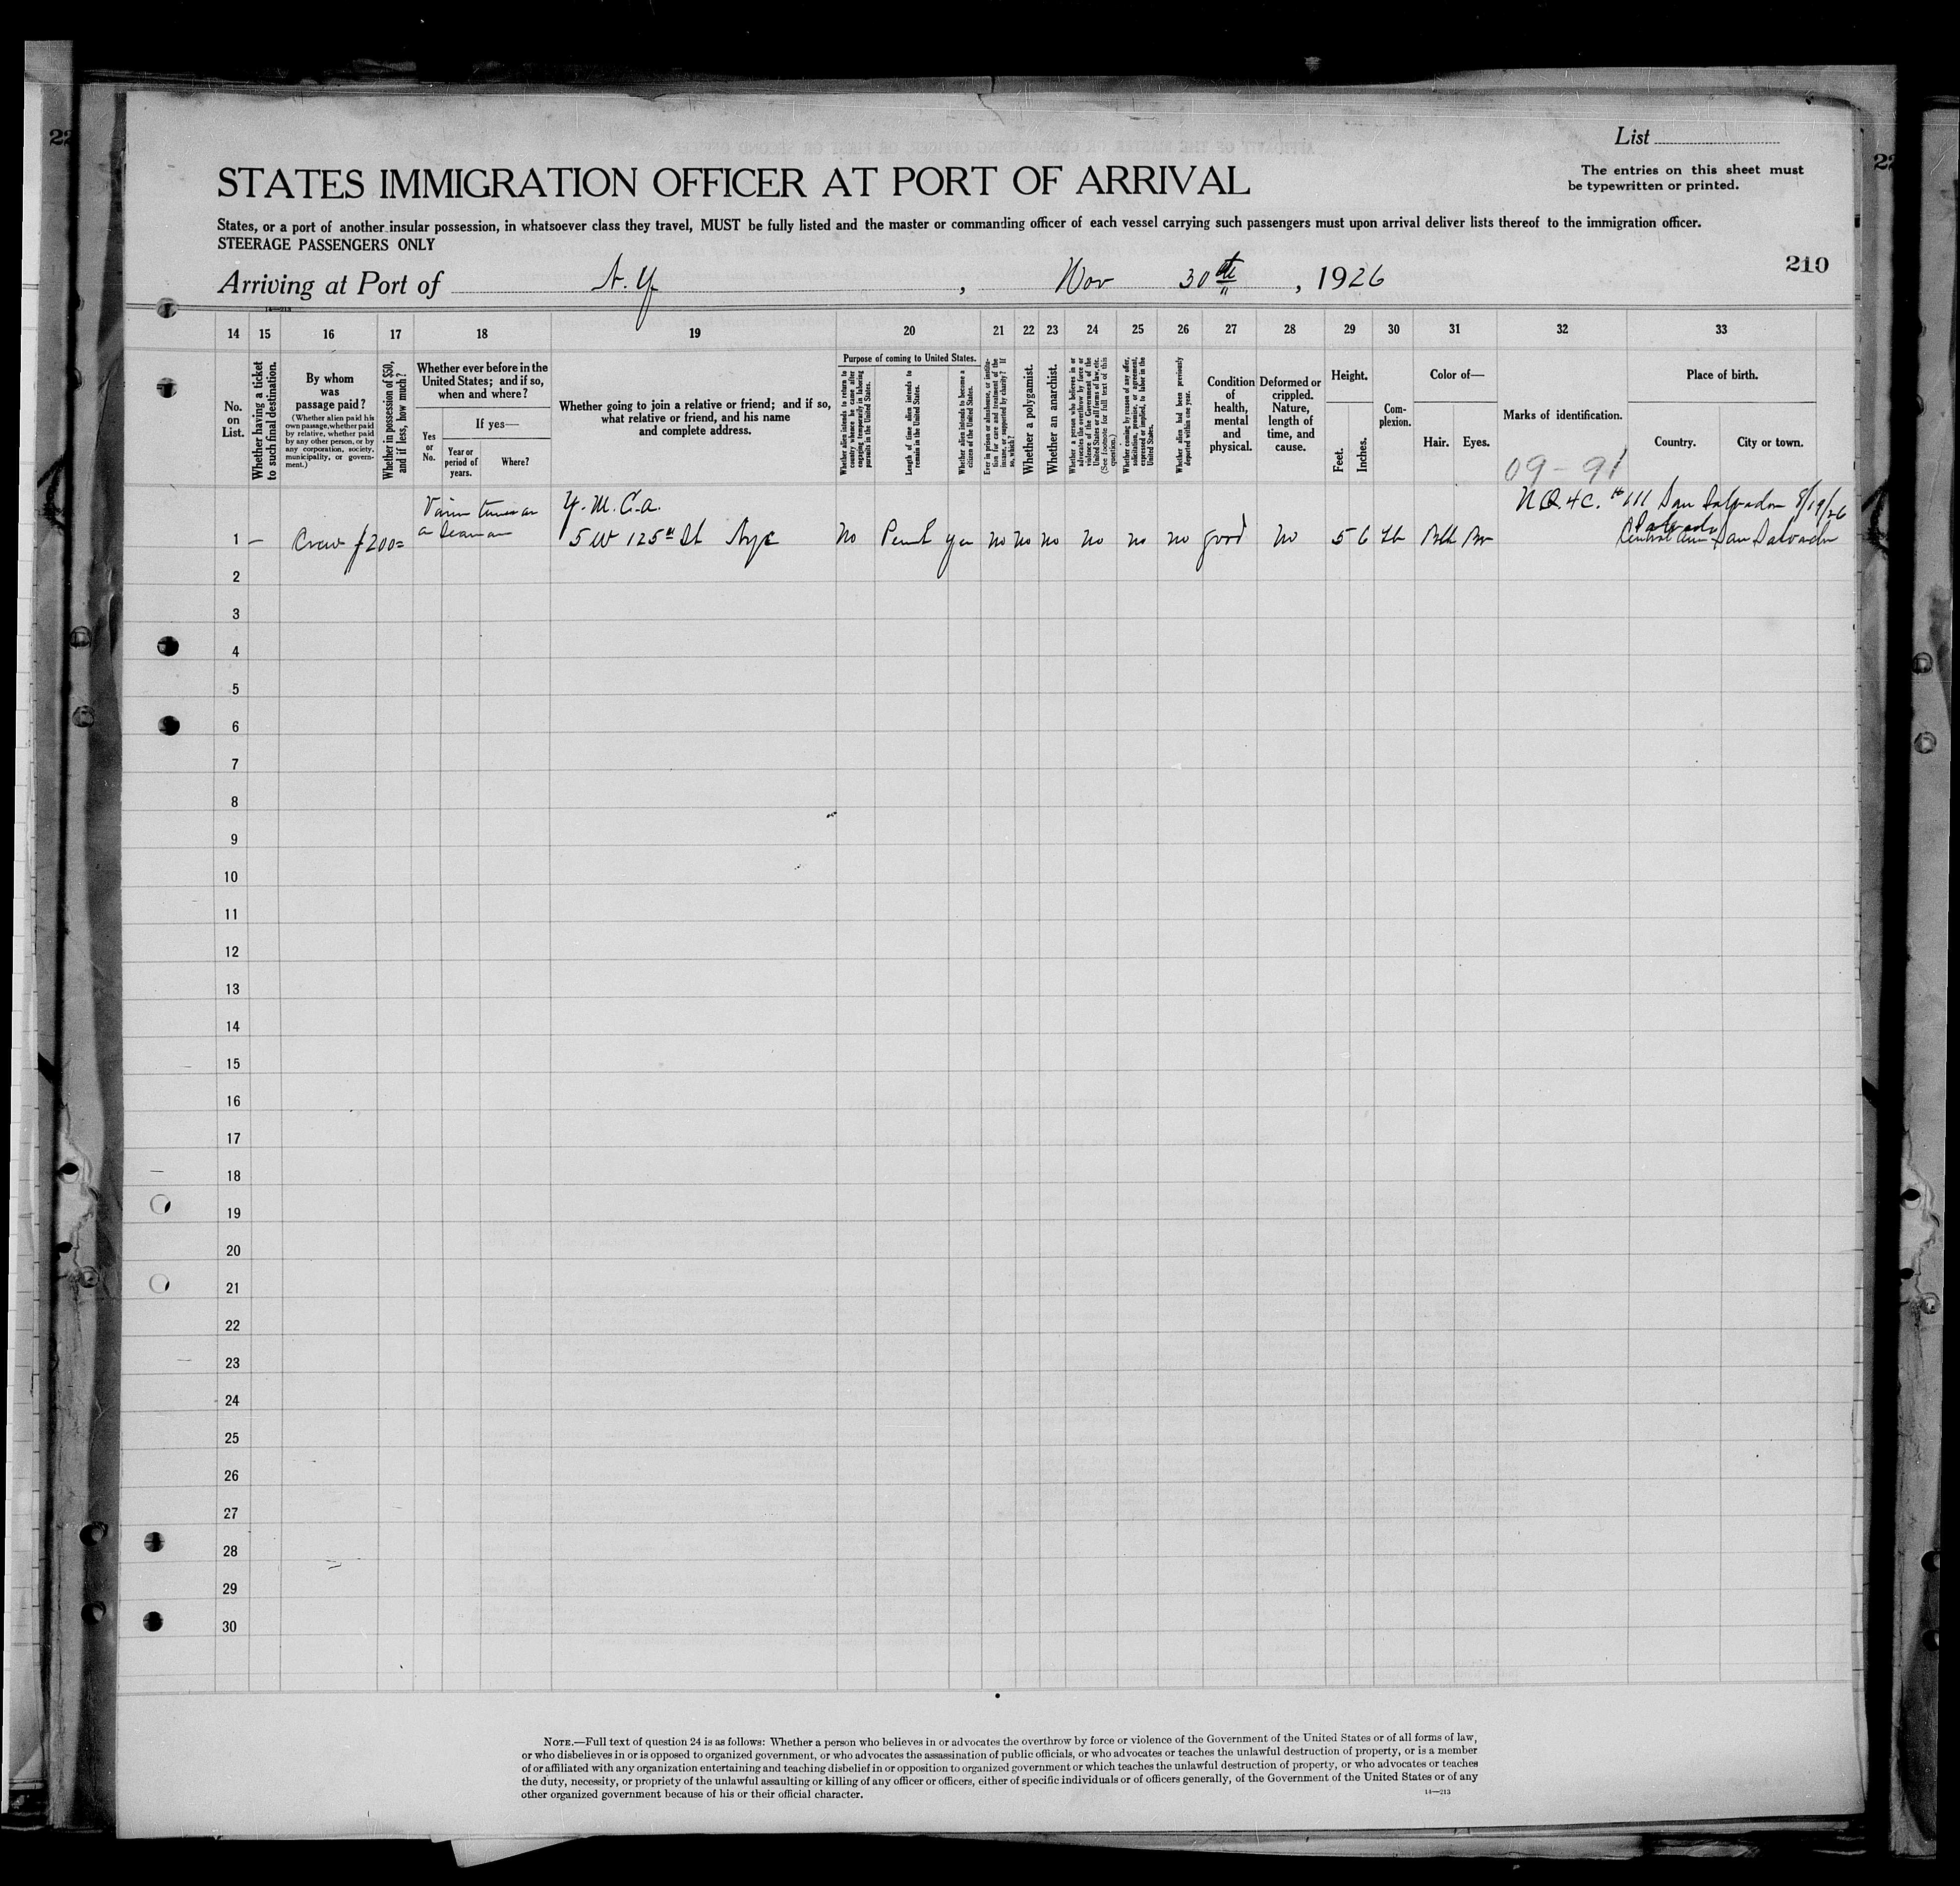 List
STATES IMMIGRATION OFFICER AT PORT OF ARRIVAL
The entries on this sheet must
be typewritten or printed.
States, or a port of another insular possession, in whatsoever class they travel, MUST be fully listed and the master or commanding officer of each vessel carrying such passengers must upon arrival deliver lists thereof to the immigration officer.
STEERAGE PASSENGERS ONLY
210
Arriving at Port of N. Y. , Nov 30th , 1926
14—213
14 15 16 17 18 19 20 21 22 23 24 25 26 27 28 29 30 31 32 33
No.
on
List.
Whether having a ticket
to such final destination.
By whom
was
passage paid?
(Whether alien paid his
own passage, whether paid
by relative, whether paid
by any other person, or by
any corporation, society,
municipality, or govern-
ment.)
Whether in possession of $50,
and if less, how much?
Whether ever before in the
United States; and if so,
when and where?
If yes—
Yes
or
No.
Year or
period of
years.
Where?
Whether going to join a relative or friend; and if so,
what relative or friend, and his name
and complete address.
Purpose of coming to United States.
Whether alien intends to return to
country whence he came after
engaging temporarily in laboring
pursuits in the United States.
Length of time alien intends to
remain in the United States.
Whether alien intends to become a
citizen of the United States.
Ever in prison or almshouse, or institu-
tion for care and treatment of the
insane, or supported by charity? If
so, which?
Whether a polygamist.
Whether an anarchist.
Whether a person who believes in or
advocates the overthrow by force or
violence of the Government of the
United States or all forms of law, etc.
(See footnote for full text of this
question.)
Whether coming by reason of any offer,
solicitation, promise, or agreement,
expressed or implied, to labor in the
United States.
Whether alien had been previously
deported within one year.
Condition
of
health,
mental
and
physical.
Deformed or
crippled.
Nature,
length of
time, and
cause.
Height.
Feet.
Inches.
Com-
plexion.
Color of—
Hair. Eyes.
Marks of identification.
Place of birth.
Country. City or town.
09-91
Y. M. C. A.
San Salvador 8/19/26
1 — Crew $200= 5 W 125th St NYC no Perm't yes no no no no no no good no 5 6 Blk Br San Salvador
2
3
4
5
6
7
8
9
10
11
12
13
14
15
16
17
18
19
20
21
22
23
24
25
26
27
28
29
30
NOTE.—Full text of question 24 is as follows: Whether a person who believes in or advocates the overthrow by force or violence of the Government of the United States or of all forms of law,
or who disbelieves in or is opposed to organized government, or who advocates the assassination of public officials, or who advocates or teaches the unlawful destruction of property, or is a member
of or affiliated with any organization entertaining and teaching disbelief in or opposition to organized government or which teaches the unlawful destruction of property, or who advocates or teaches
the duty, necessity, or propriety of the unlawful assaulting or killing of any officer or officers, either of specific individuals or of officers generally, of the Government of the United States or of any
other organized government because of his or their official character.
14—213